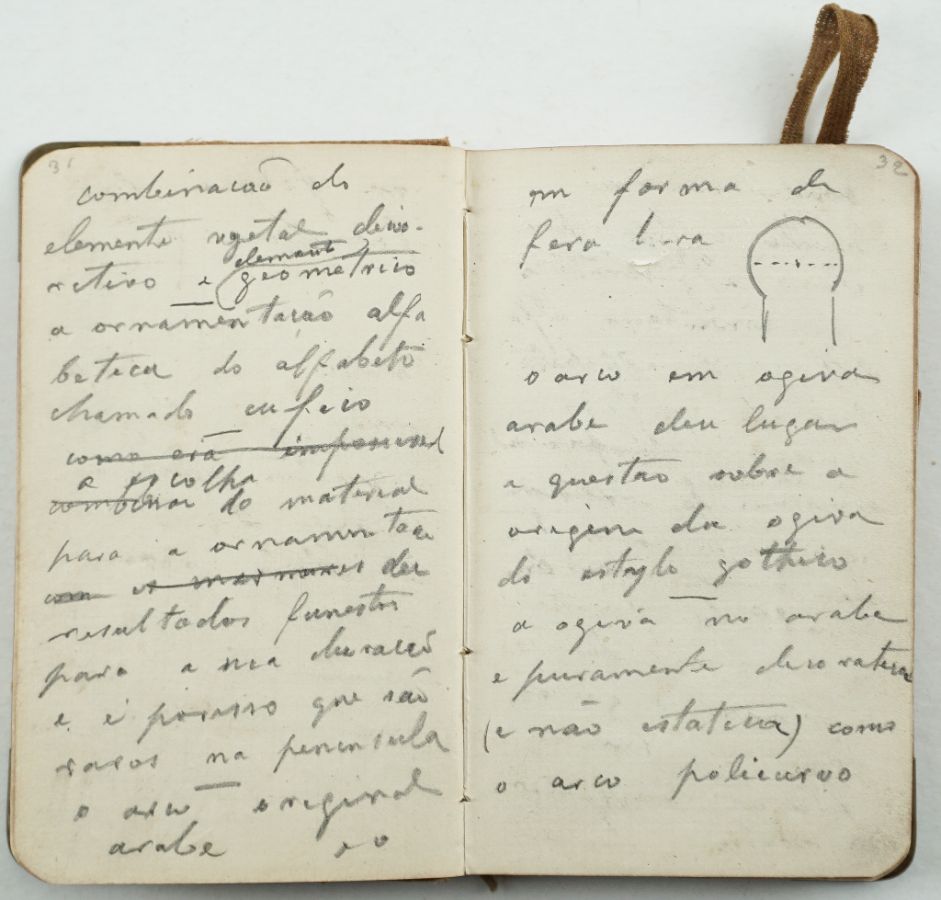 31
combinação do
elemento vegetal deco-
rativo e elemento
geometrico
a ornamentação alfa
betica do alfabeto
chamado cufico
como era impossivel
a escolha
combinar do material
para a ornamentação
com os marmores deu
resultados funestos
para a sua duração
e é porisso que são
raros na peninsula
o arco original
arabe
32
em forma de
ferradura
o arco em ogiva
arabe deu lugar
a questão sobre a
origem da ogiva
do estylo gothico
a ogiva no arabe
e puramente decorativa
(e não estatica) como
o arco policurvo